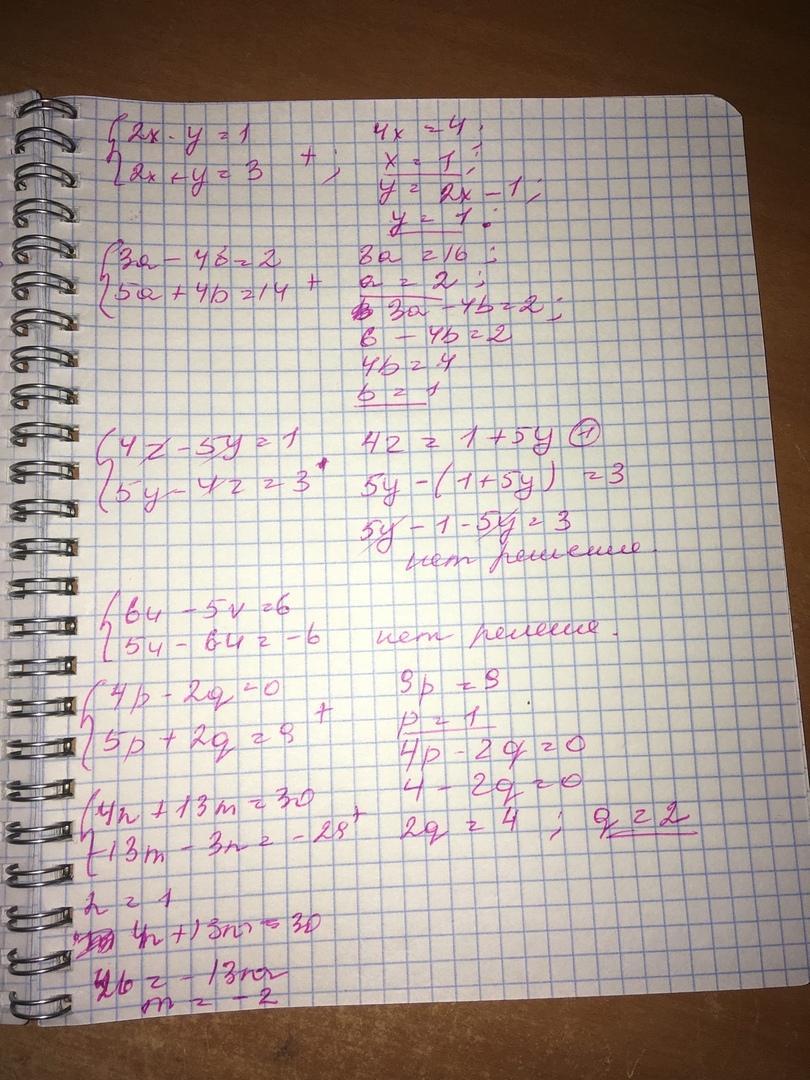 2x - y = 1
2x + y = 3 + ;
4x = 4;
x = 1;
y = 2x - 1;
y = 1;
3a - 4b = 2
5a + 4b = 14 +
8a = 16;
a = 2;
3a - 4b = 2;
6 - 4b = 2
4b = 4
b = 1
4z - 5y = 1
5y - 4z = 3
4z = 1 + 5y
5y - (1 + 5y) = 3
5y - 1 - 5y = 3
нет решение.
6u - 5v = 6
5u - 6u = -6
нет решение.
4p - 2q = 0
5p + 2q = 9 +
9p = 9
p = 1
4p - 2q = 0
4 - 2q = 0
2q = 4 ; q = 2
4n + 13m = 30
-13m - 3n = -29 +
n = 1
4n + 13m = 30
26 = -13m
m = -2